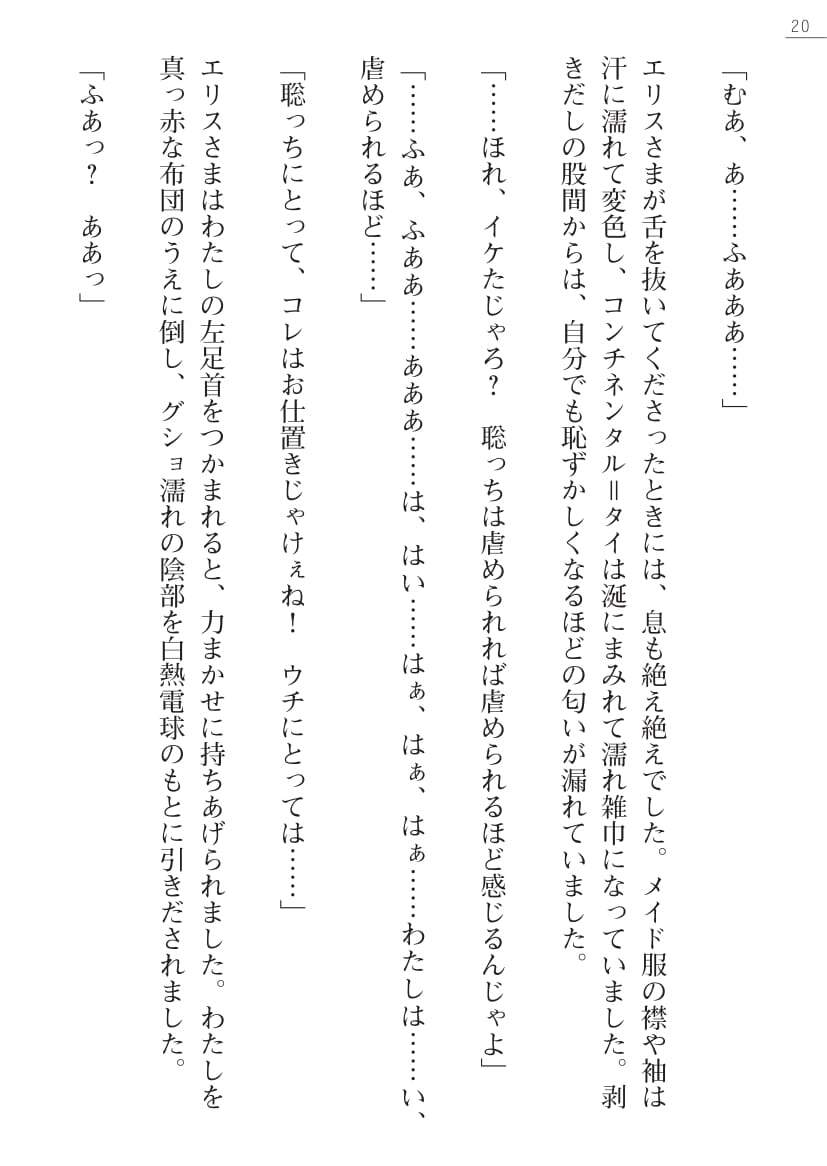 20
「むぁ、あ……ふぁぁぁ……」
エリスさまが舌を抜いてくださったときには、息も絶え絶えでした。メイド服の襟や袖は
汗に濡れて変色し、コンチネンタル＝タイは涎にまみれて濡れ雑巾になっていました。剥
きだしの股間からは、自分でも恥ずかしくなるほどの匂いが漏れていました。
「……ほれ、イケたじゃろ？　聡っちは虐められれば虐められるほど感じるんじゃよ」
「……ふぁ、ふぁぁ……あああ……は、はい……はぁ、はぁ、はぁ……わたしは……い、
虐められるほど……」
「聡っちにとって、コレはお仕置きじゃけぇね！　ウチにとっては……」
エリスさまはわたしの左足首をつかまれると、力まかせに持ちあげられました。わたしを
真っ赤な布団のうえに倒し、グショ濡れの陰部を白熱電球のもとに引きだされました。
「ふあっ？　ああっ」